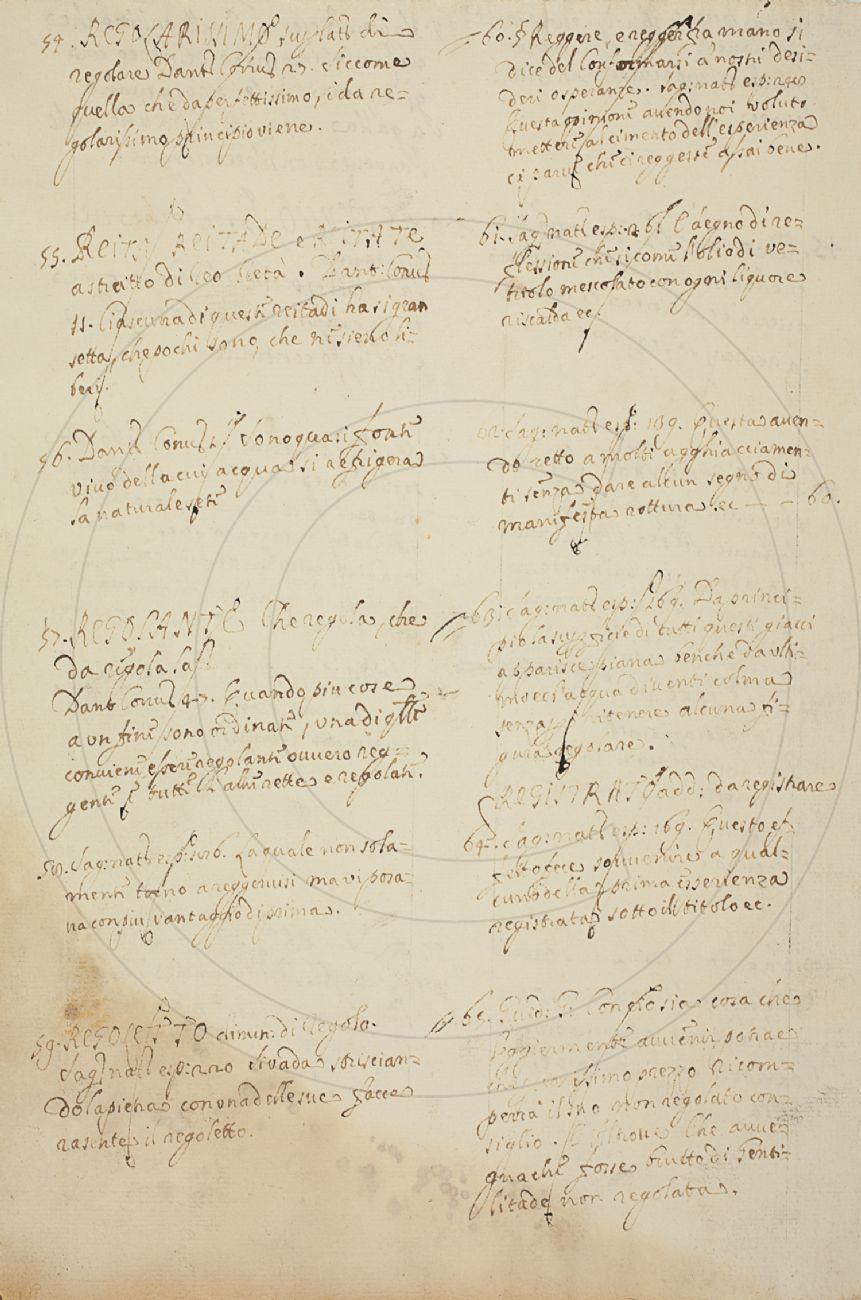 54. REGOLARISSIMO suplat: di
regolare Dant: Convi: 27. Siccome
quella che da perfettissimo, e da re=
golarissimo principio viene.
55. REITA, REITADE e REITATE
astratto di Reo Rietà. Dant: Conv:
11. Ciascuna di queste reitadi ha sì gran
setta, che pochi sono, che ne sieno li=
beri.
56. Dant: Conv: 1. Sono quasi fonte
vivo della cui acqua si refrigera
la naturale sete
57. REGOLANTE Che regola, che
da regola Las.
Dant Conv: 47. Quando piu cose
a un fine sono ordinate, una di quelle
conviene essere regolante ovvero reg=
gente e tutte l'altre rette e regolate.
58. Sag: nat: esp: 126. La quale non sola=
mente tornò a reggervisi ma vi posa=
va con piu vantaggio di prima.
59. REGOLETTO dimin: di Regolo.
Sag: nat: esp: 220 Si vada strisciando
do la pietra con una delle sue facce
rasente il regoletto.
60. § Reggere, e reggere tra mano si
dice del Conformarsi a nostri desi=
deri o speranze. Sag: nat: esp:
Questa opinione avendo noi voluto
mettere al cimento dell'esperienza
ci parve che ci reggeste assai bene.
61. Sag: nat: esp: 261 Ragno di re=
flessione che siccome l'olio di ve=
triolo mescolato con ogni liquore
riscalda ec.
62. Sag: nat: esp: 139. Questa aven=
do retto a molti agghiacciamen=
ti senza dare alcun segno di
manifesta rottura ec — — 60.
63. Sag: nat: esp: 169. Da princi=
pio la superficie di tutti questi giacci
apparisce piana benche da ulti=
mo essa acqua diventi colma
senza ritenere alcuna fi=
gura regolare.
REGISTRATO add: da registrare
64. Sag: nat: esp: 169. Questo ef=
fetto fece sovvenire a qual=
cuno della prima esperienza
registrata sotto il titolo ec.
65. Guid: G. cosa che
leggiermente avviene
prezzo ricom=
perra il suo non regolato con=
siglio. E altrove Che avve=
gnache fosse tutto di Genti=
litade non regolata.